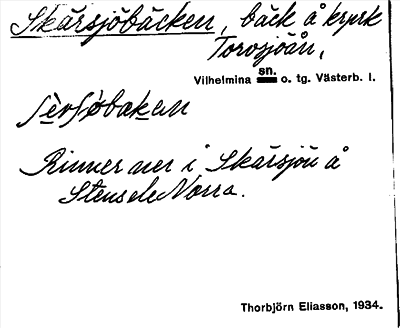 Skärsjöbäcken, bäck å krprk
Torvsjöån,
Vilhelmina sn. o. tg. Västerb. l.
Rinner ner i Skärsjön å
Stensele Norra.
Thorbjörn Eliasson, 1934.